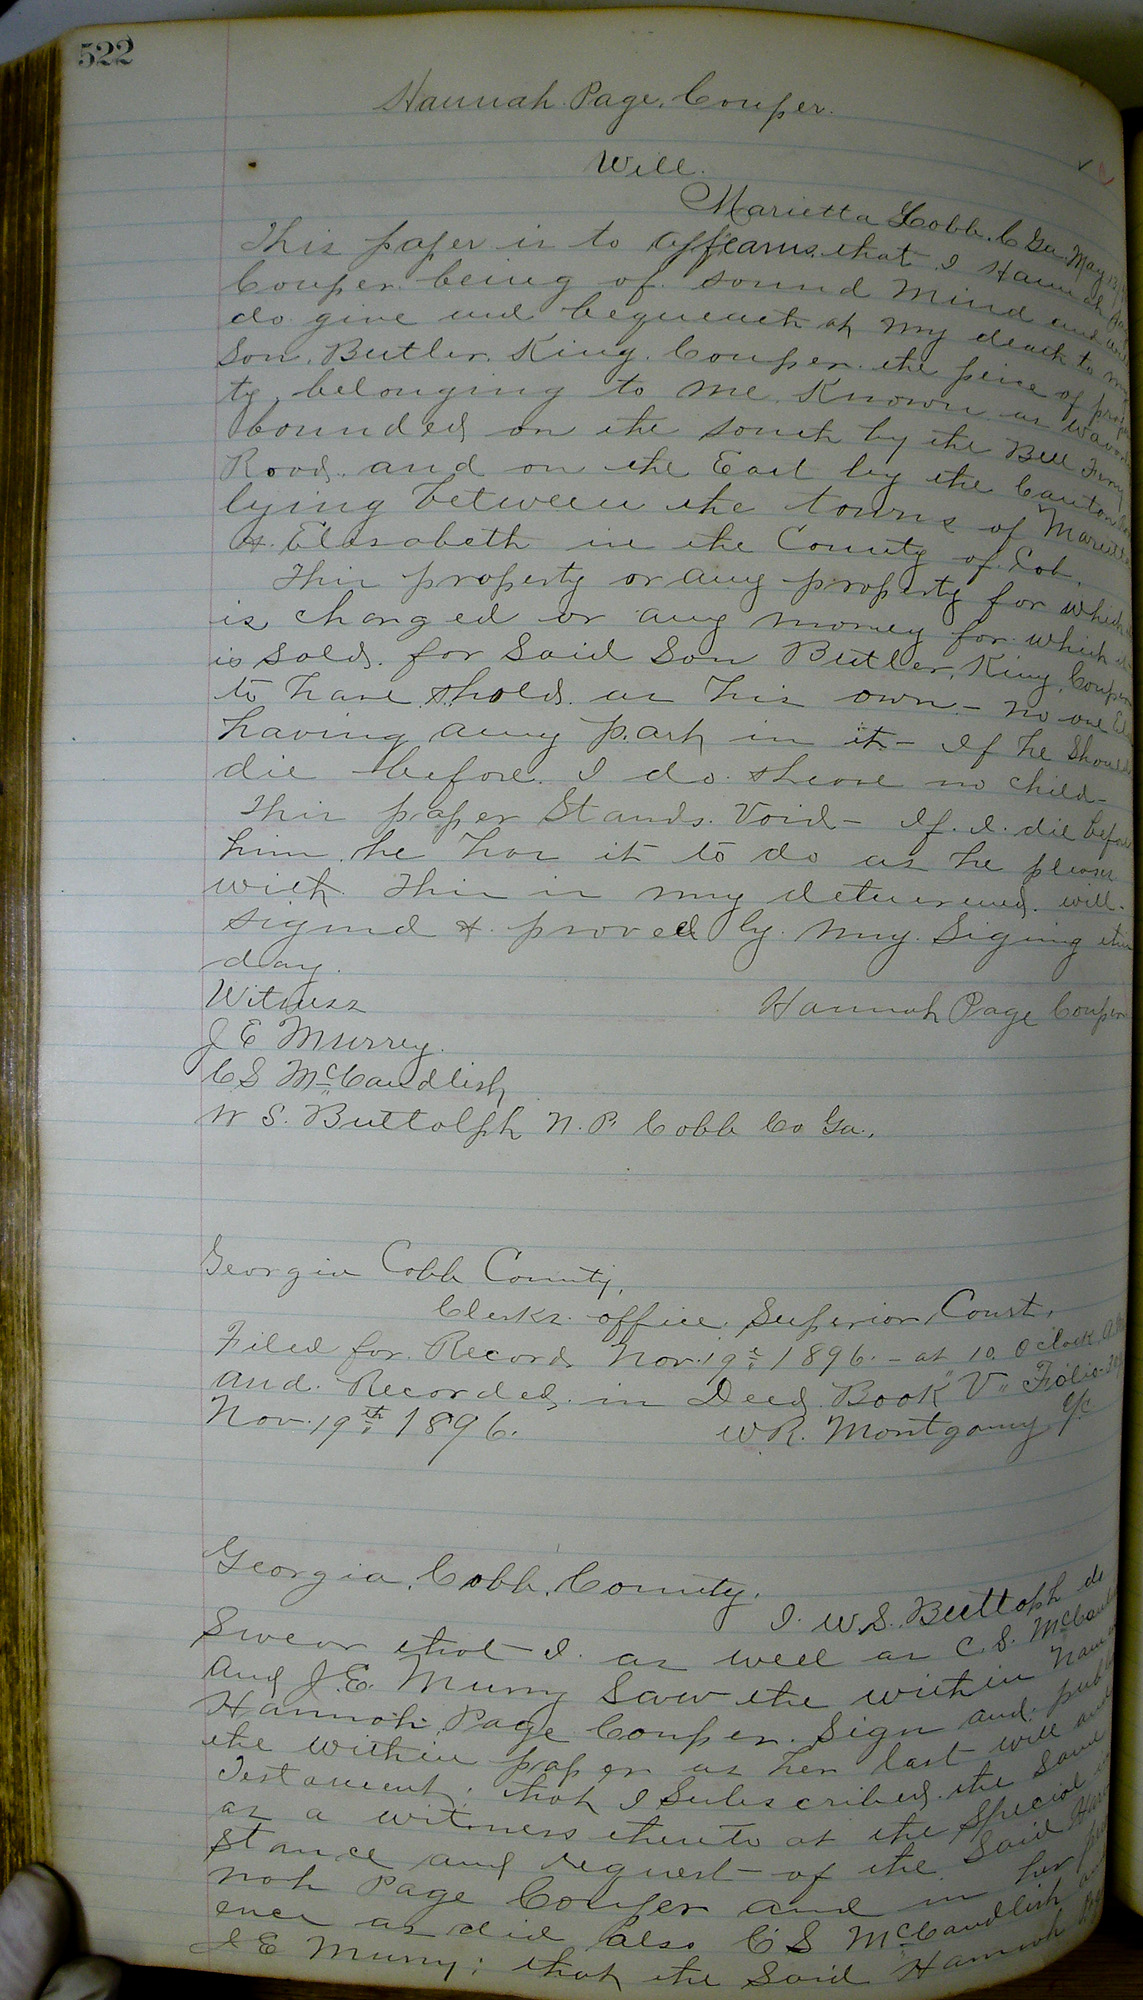 522
Hannah Page. Couper.
Will.
Marietta Cobb. C Ga. May 13
This paper is to affirms that I Hannah Page
Couper being of sound mind and
do give and bequeath at my death to my
Son. Butler. King. Couper. the peice of proper
ty belonging to me Known as
bounded on the south by the Bell Ferry
Road. and on the East by the Canton
lying between the towns of Marietta
& Elisabeth in the County of Cob.
This property or any property for which
is changed or any money for which it
is sold. for Said Son Butler, King, Couper
to have & hold. as his own - no one
having any part in it - If he Should
die before. I do. & leave no child -
This paper Stands. Void - If. I. die before
him. he has it to do as he please
with. This is my determined. will.
signed & proved by. my. Signing this
day.
Witness
Hannah Page Couper
J E Murrey.
C S McCandlish
W S. Buttolph N. P. Cobb Co Ga.
Georgia Cobb County,
Clerks. office. Superior Court,
Filed for. Record Nov. 19th 1896. - at 10. Oclock. A.M
and. Recorded. in Deed. Book "V" Folio
Nov. 19th 1896. W.R. Montgomy Clk
Georgia. Cobb. County.
I. W.S. Buttolph do
Swear that I. as well as C. S. McCandlish
and J. E. Murry Saw the within
Hannah. Page Couper. Sign and publish
the within paper as her last will and
Testament; that I Subscribed. the Same
as a witness thereto at the Special in
stance and request - of the Said Han
nah Page Couper and in her pres
ence as did also C S McCandlish and
J E Murry; that the Said Hannah Page